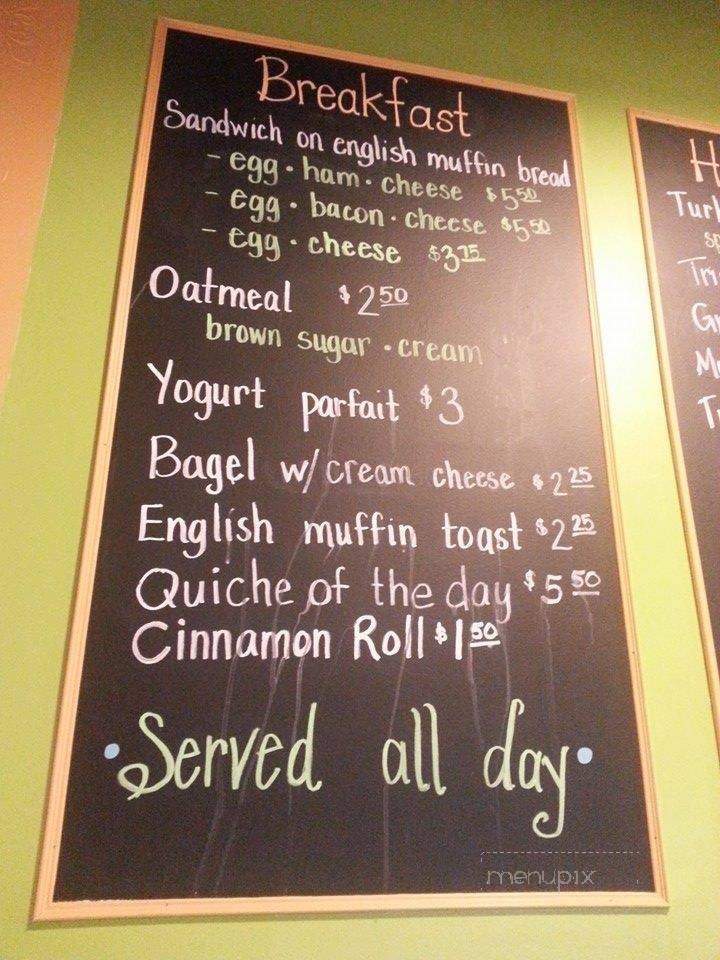 Breakfast
Sandwich on english muffin bread
- egg · ham · cheese $5 50
- egg · bacon · cheese $5 50
- egg · cheese $3 75
Oatmeal $2 50
brown sugar · cream
Yogurt parfait $3
Bagel w/ cream cheese $2 25
English muffin toast $2 25
Quiche of the day $5 50
Cinnamon Roll $1 50
· Served all day ·
menupix